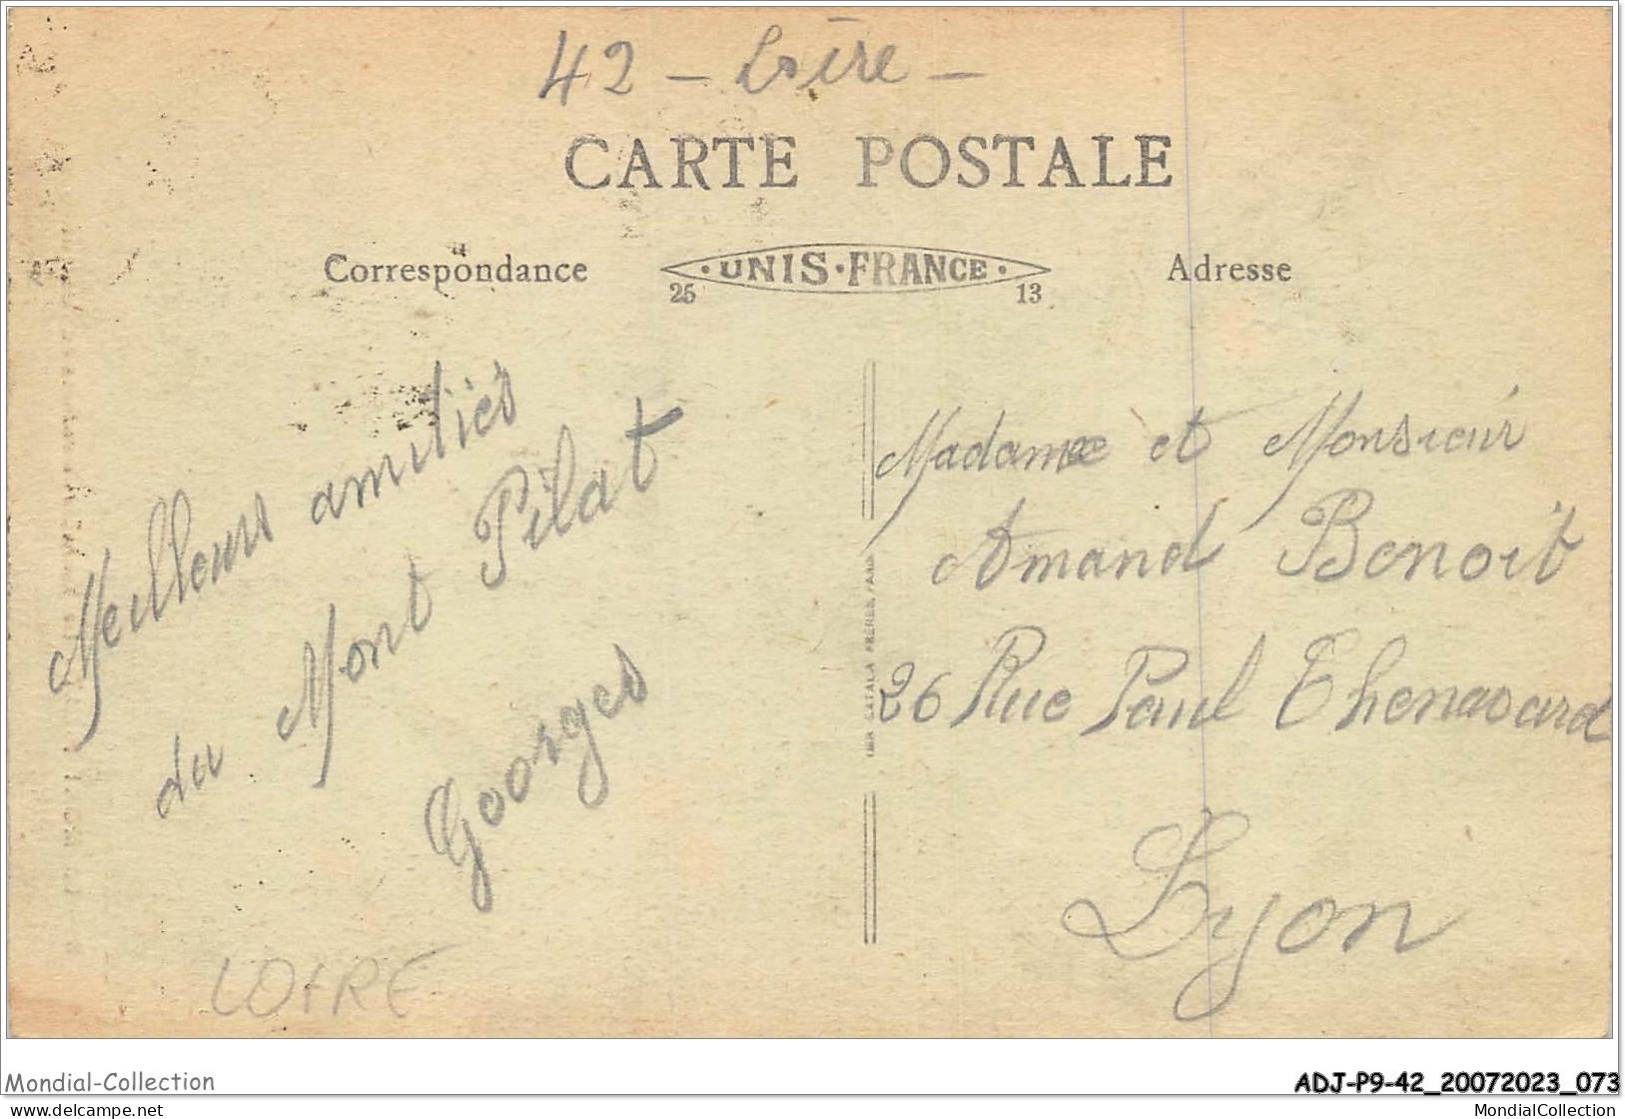 42 - Loire -
CARTE POSTALE
Correspondance
UNIS·FRANCE
25
13
Adresse
Meilleurs amitiés
du Mont Pilat
Georges
LOIRE
Madame et Monsieur
Amand Benoit
26 Rue Paul Chenavard
Lyon
IMP. CATALA FRÈRES PARIS
Mondial-Collection
ADJ-P9-42_20072023_073
www.delcampe.net
MondialCollection